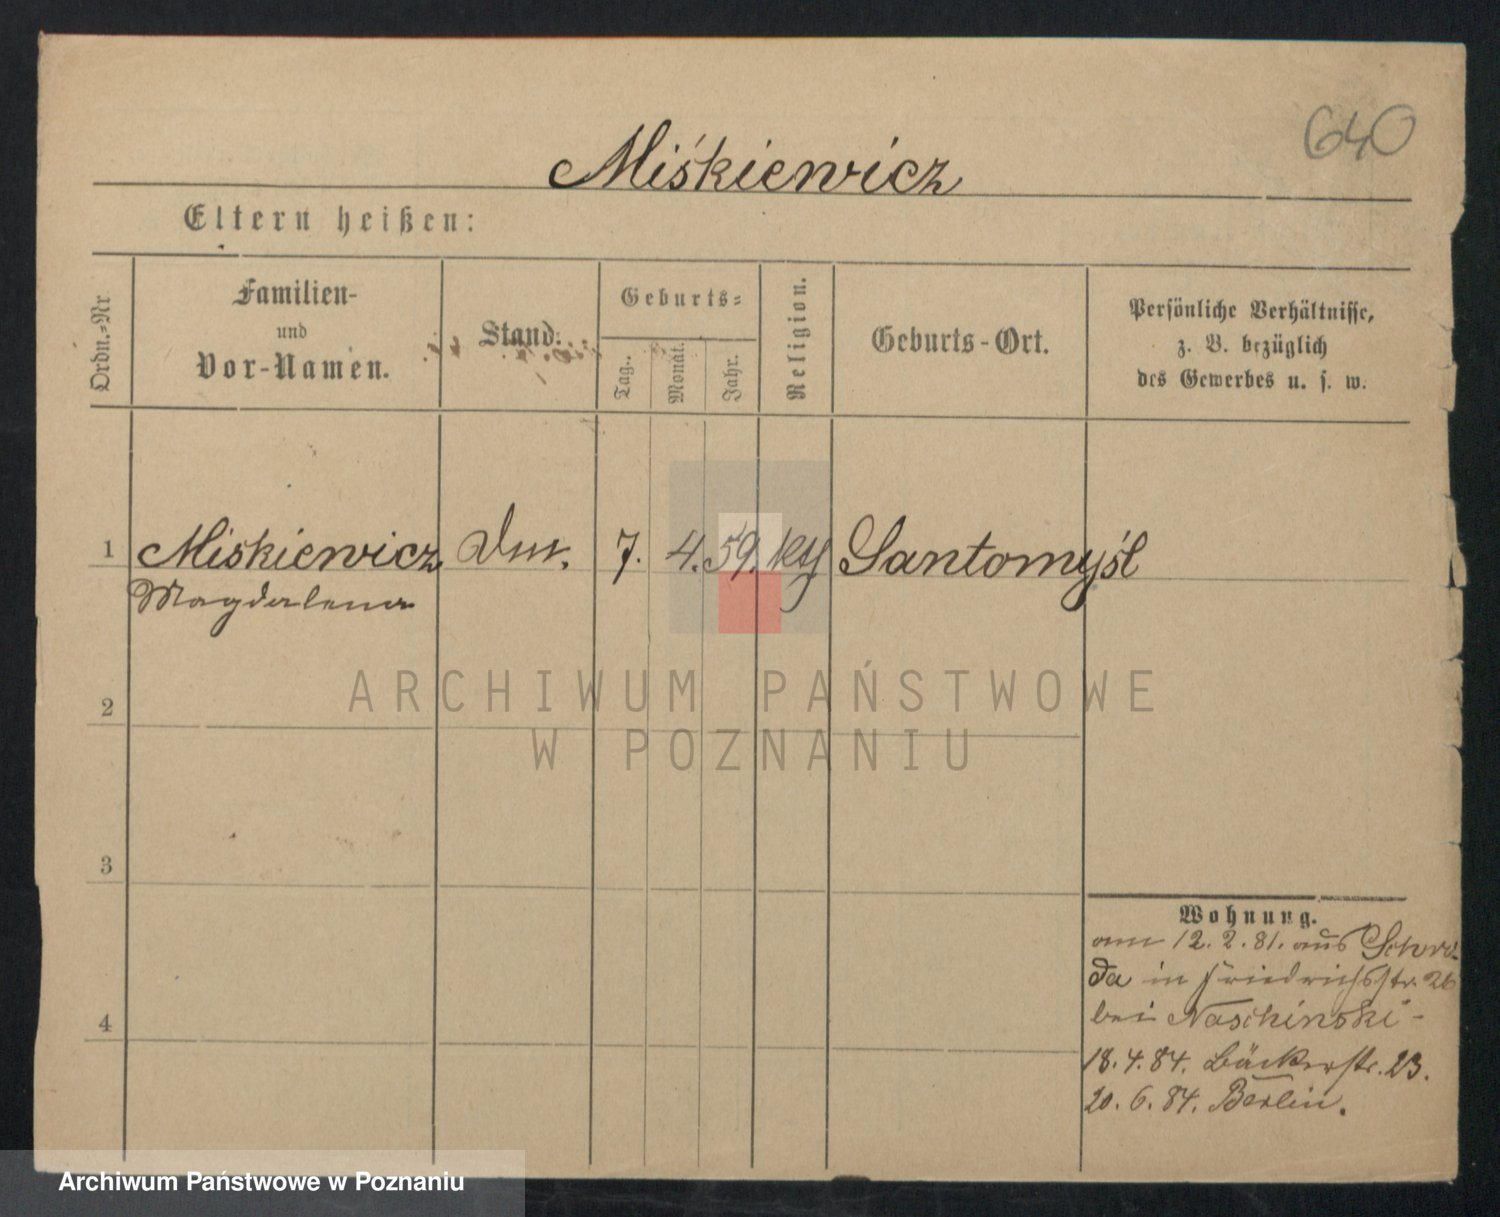 640
Miśkiewicz
Eltern heißen:
Ordn.=Nr
Familien-
und
Vor-Namen.
Stand.
Geburts=
Tag.
Monat.
Jahr.
Religion.
Geburts-Ort.
Persönliche Verhältnisse,
z. B. bezüglich
des Gewerbes u. s. w.
1 Miskiewicz 7. 4. 59. kth Santomyśl
Magdalena
ARCHIWUM PAŃSTWOWE
W POZNANIU
2
3
4
Wohnung.
am 12.2.81. aus Schro-
da in Friedrichsstr. 26
bei Naschinski-
18.4.84. Bäckerstr. 23.
20.6.84. Berlin.
Archiwum Państwowe w Poznaniu